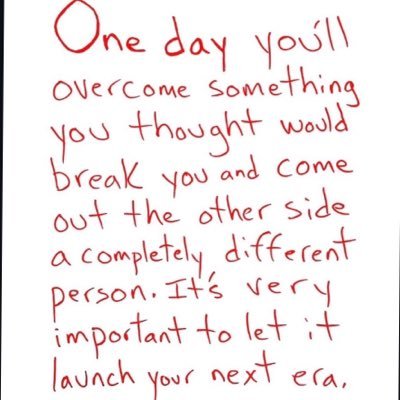 One day you'll
overcome something
you thought would
break you and come
out the other side
a completely different
person. It's very
important to let it
launch your next era.